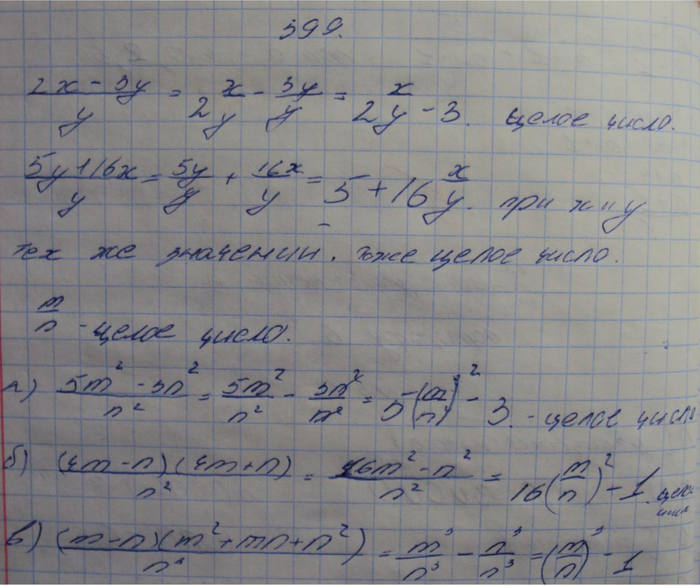 599.
(2x - 3y)/y = 2 x/y - 3y/y = 2 x/y - 3. целое число.
(5y+16x)/y = 5y/y + 16x/y = 5 + 16 x/y. при x и y
тех же значении. тоже целое число.
m/n - целое число.
а) (5m² - 3n²)/n² = 5m²/n² - 3n²/n² = 5(m/n)² - 3. - целое число
б) (4m-n)(4m+n)/n² = (16m² - n²)/n² = 16(m/n)² - 1. целое
в) (m-n)(m²+mn+n²)/n³ = m³/n³ - n³/n³ = (m/n)³ - 1